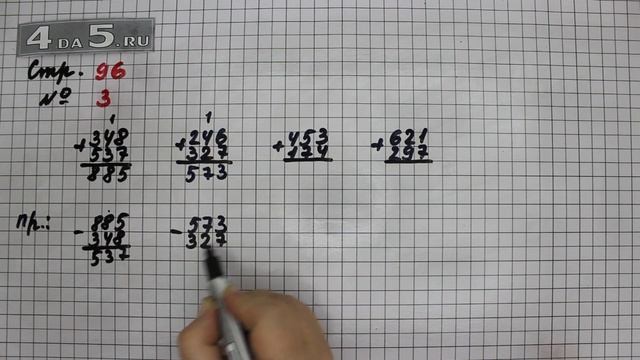 4 ДА 5.RU
Стр. 96
№ 3
1 1
+348 +246 +453 +621
537 327 174 297
885 573
пр.:
-885 -573
348 327
537